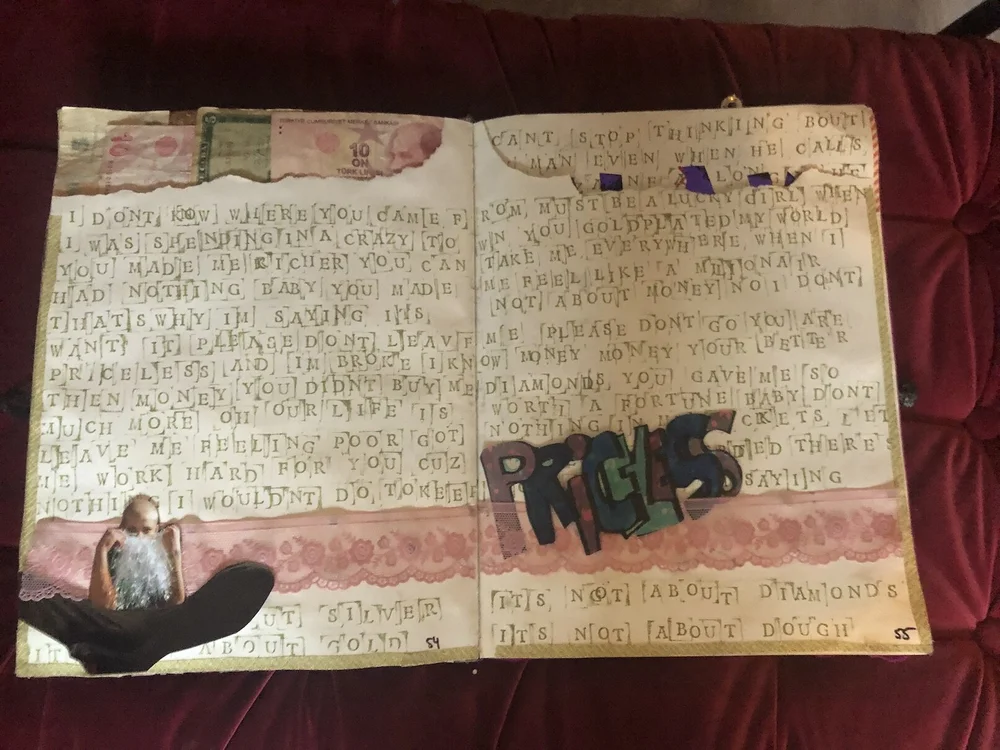 TÜRKİYE CUMHURİYET MERKEZ BANKASI
10
ON
TÜRK LİRASI
CANT STOP THINKING BOUT
MAN EVEN WHEN HE CALLS
I DONT KOW WHERE YOU CAME FROM, MUST BE A LUCKY GIRL WHEN
I WAS SHENDING IN A CRAZY TOWN YOU GOLDPLATED MY WORLD
YOU MADE ME RICHER YOU CAN TAKE ME EVERYWHERE WHEN I
HAD NOTHING BABY YOU MADE ME FEEL LIKE A MILIONAIR
THATS WHY IM SAYING ITS NOT ABOUT MONEY NO I DONT
WANT IT PLEASE DONT LEAVE ME PLEASE DONT GO YOU ARE
PRICELESS AND IM BROKE I KNOW MONEY MONEY YOUR BETTER
THEN MONEY YOU DIDNT BUY ME DIAMONDS YOU GAVE ME SO
MUCH MORE OH OUR LIFE IS WORTH A FORTUNE BABY DONT
LEAVE ME FEELING POOR GOT NOTHING IN CKETS LET
ME WORK HARD FOR YOU CUZ TED THERES
NOTHING I WOULDNT DO TO KEEP SAYING
PRICELESS
UT SILVER ITS NOT ABOUT DIAMONDS
IT ABOUT GOLD ITS NOT ABOUT DOUGH
54 55